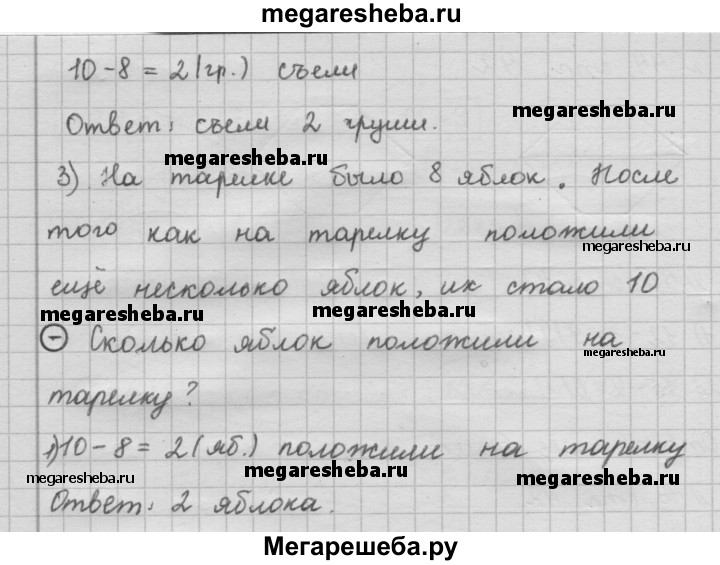 megaresheba.ru
10-8=2(гр.) съели
megaresheba.ru
Ответ: съели 2 груши.
megaresheba.ru
3) На тарелке было 8 яблок. После
того как на тарелку положили
megaresheba.ru
ещё несколько яблок, их стало 10
megaresheba.ru megaresheba.ru
- Сколько яблок положили на
megaresheba.ru
тарелку?
1) 10-8=2(яб.) положили на тарелку
megaresheba.ru megaresheba.ru megaresheba.ru
Ответ: 2 яблока.
Мегарешеба.ру